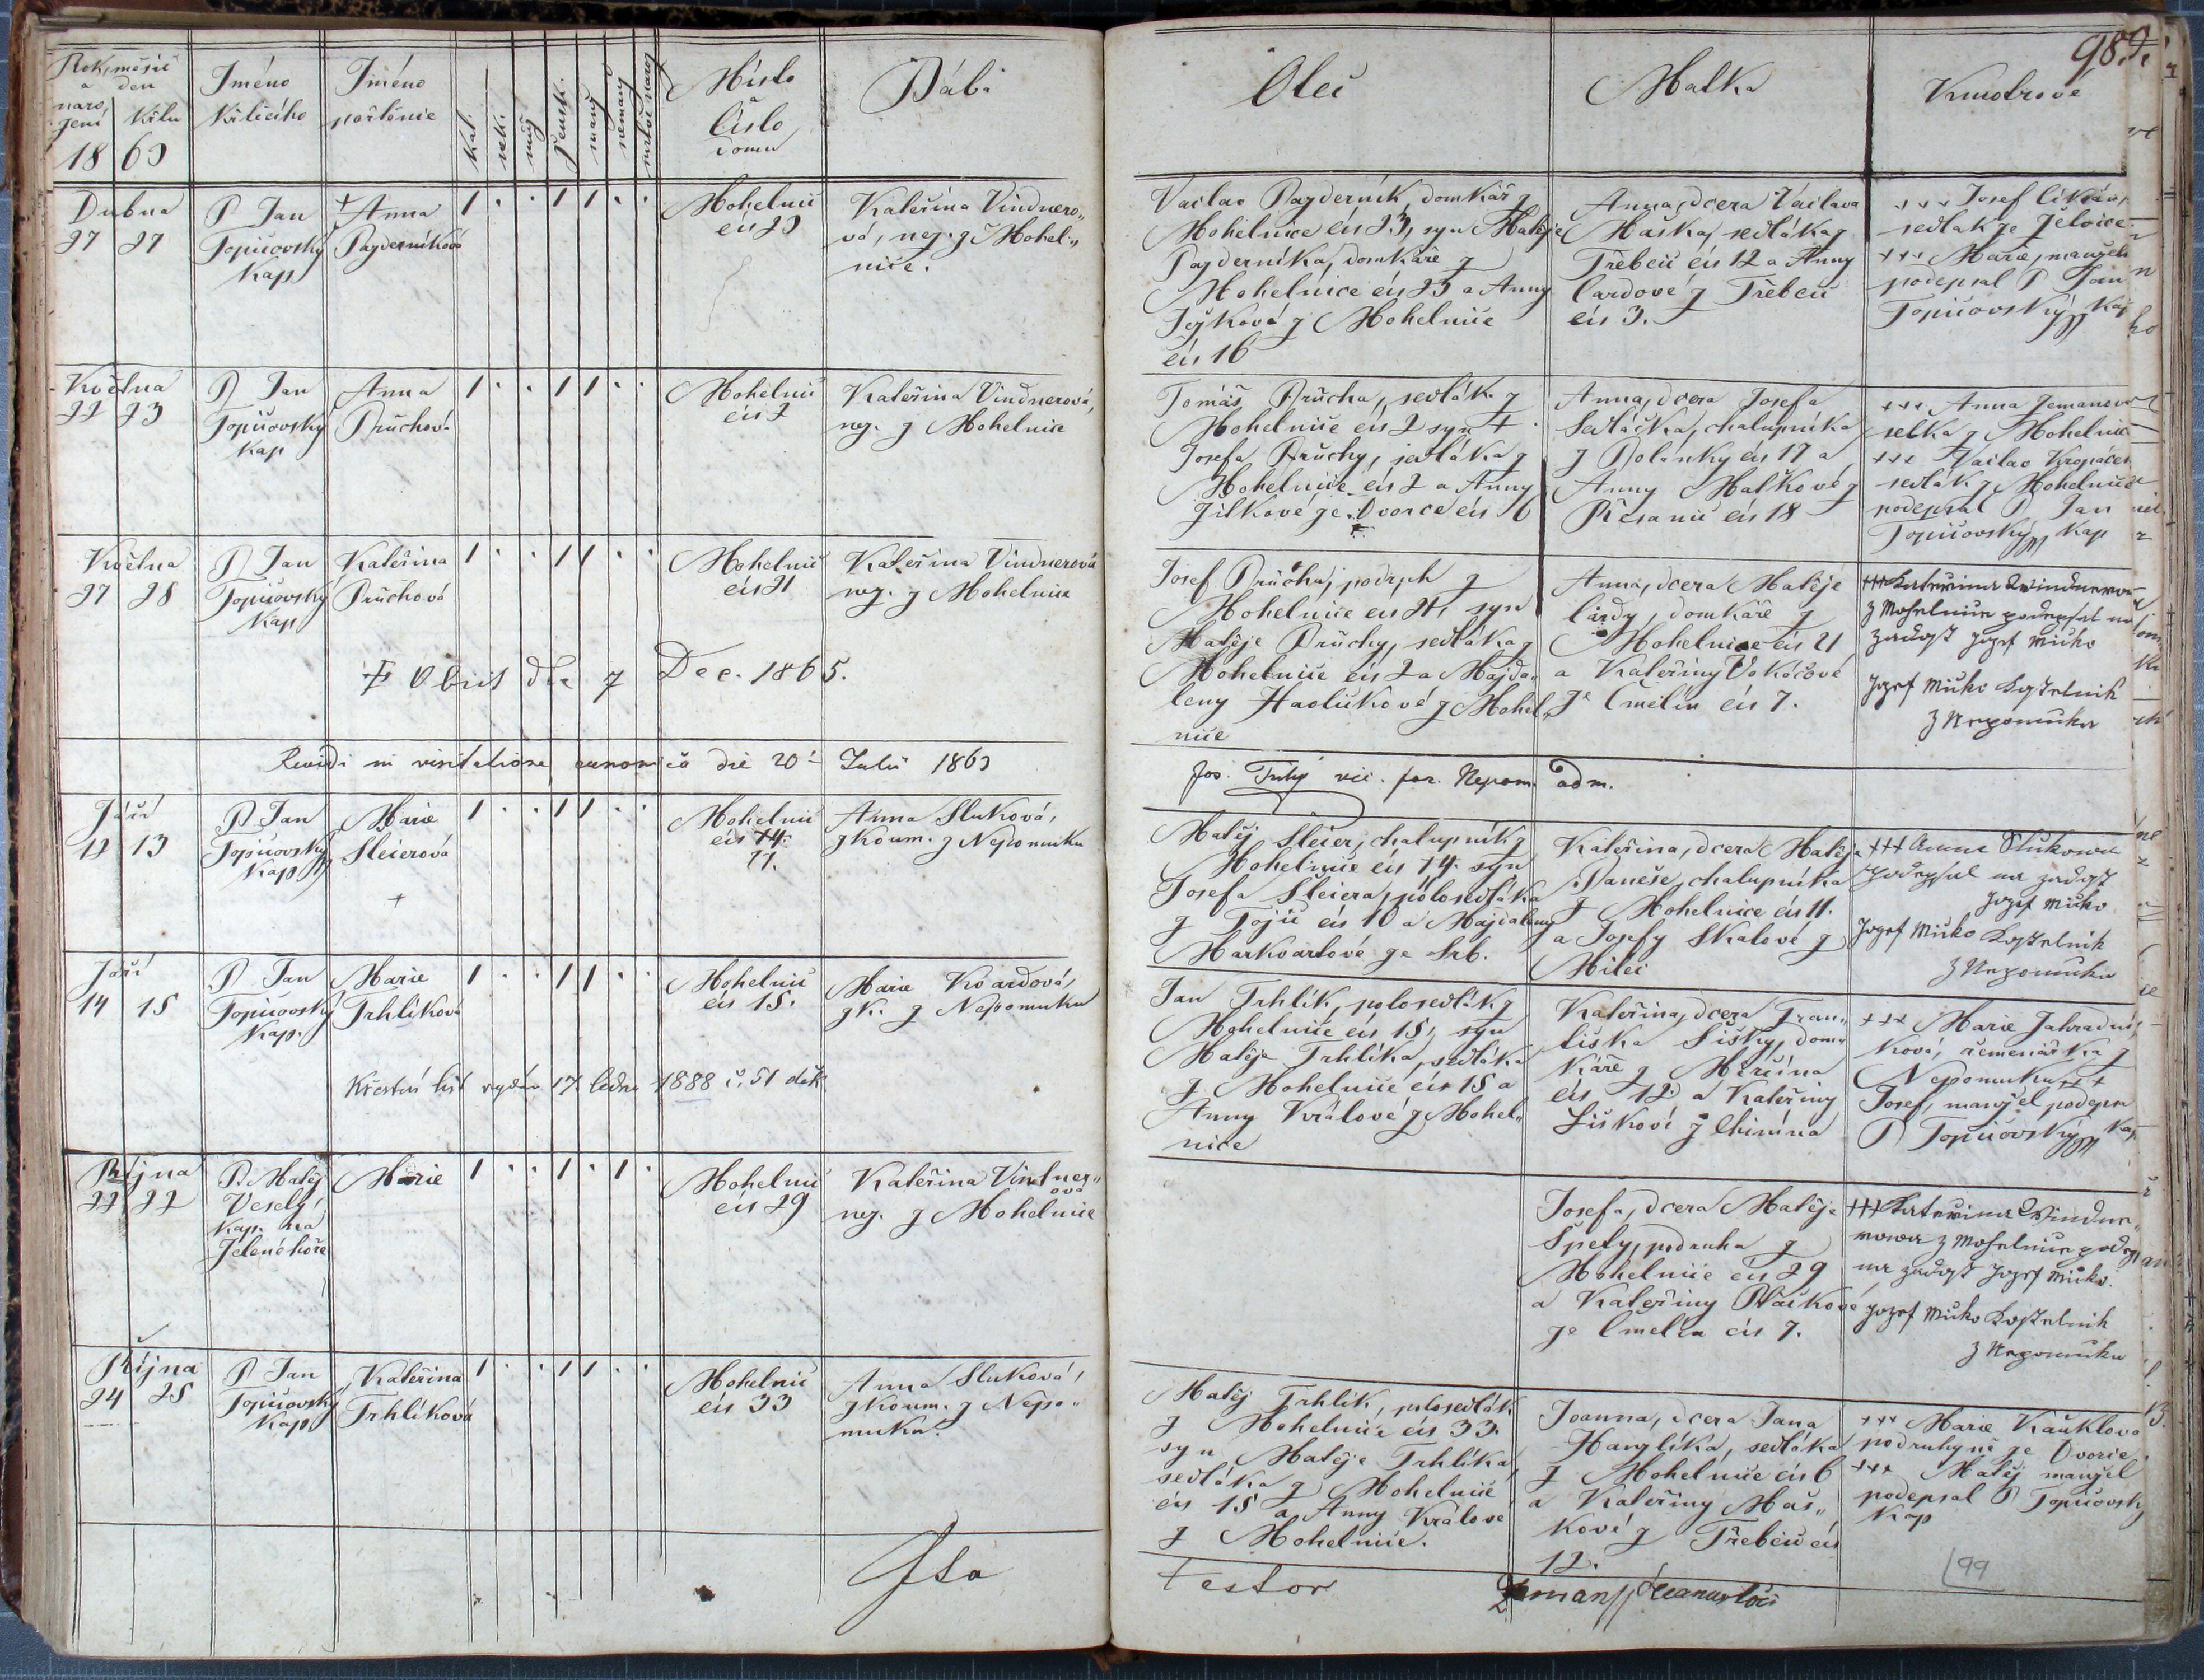 Rok, měsíc
a den
naro
zení
Křtu
1863
Jméno
Křtícího
Jméno
pokřtěnce
kat.
nekt.
muž.
žensk.
manž
neman
mrtvě naroz
Místo
a
číslo
domu
Bába
Otec
Matka
Kmotrové
98.
Dubna
27 27
P Jan
Topičovský
Kap
+ Anna
Payderníková
1 . . 1 1 . .
Mohelnic
čís 23
Kateřina Vindnero„
vá, nez. z Mohel„
nice.
Vaclav Payderník, domkář z
Mohelnice čís 23, syn Matěje
Payderníka, domkáře z
Mohelnice čís 23 a Anny
z Mohelnice
čís 16
Anna, dcera Václava
Maška, sedláka z
Třebčic čís 12 a Anny
z Třebčic
čís 3.
+++ Josef
sedlák ze
+++ Marie, manžel
podepsal P Jan
Topičovský Kap
Května
22 23
P Jan
Topičovský
Kap
Anna
Průchová
1 . . 1 1 . .
Mohelnic
čís 2
Kateřina Vindnerová,
nez. z Mohelnice
Tomáš Průcha, sedlák z
Mohelnice čís 2 syn +
Josefa Průchy, sedláka z
Mohelnice čís 2 a Anny
Jílkové ze Dvorce čís 6
Anna, dcera Josefa
Sedláčka, chalupníka
z Polánky čís 17 a
Anny Matkové z
Řesanic čís 18
+++ Anna Zemanova
selka z Mohelnic
+++ Vaclav Kropáček
sedlák z Mohelnice
podepsal P Jan
Topičovský Kap
Května
27 28
P Jan
Topičovský
Kap
Kateřina
Průchová
1 . . 1 1 . .
Mohelnic
čís 21
Kateřina Vindnerová
nez. z Mohelnice
Josef Průcha, podruh z
Mohelnice čís 21, syn
Matěje Průchy, sedláka z
Mohelnice čís 2 a Majda„
leny Havlíkové z Mohel„
nice
Anna, dcera Matěje
domkáře z
Mohelnice čís 21
a Kateřiny Vokáčové
ze Čmelín čís 7.
+++ Katerina Windnerowa
z Mohelnice podepsal na
zadost Jozef Mičko
Jozef Mičko Kostelnik
z Nepomuka
‡ Obiit die 7 Dec. 1865.
Revidi in visitatione canonica die 20 Julii 1863
Jos. Tuhý vic. for. Nepom. adm.
Září
12 13
P Jan
Topičovský
Kap
Marie
Šleierová
+
1 . . 1 1 . .
Mohelnic
čís 14.
11.
Anna Sluková,
zkoum. z Nepomuku
Matěj Šleier, chalupník z
Mohelnice čís 14. syn
Josefa Šleiera, polosedláka
z Tojic čís 10 a Majdaleny
Markvartové ze Srb.
Kateřina, dcera Matěje
Daneše, chalupníka
z Mohelnice čís 11.
a Josefy Skalové z
Milci
+++ Anna Slukowa
podepsal na zadost
Jozef Mičko
Jozef Mičko Kostelnik
z Nepomuka
Září
14 15
P Jan
Topičovský
Kap.
Marie
Trhlíková
1 . . 1 1 . .
Mohelnic
čís 15.
Marie Kvardová,
zk. z Nepomuku
Jan Trhlík, polosedlák z
Mohelnice čís 15, syn
Matěje Trhlíka, sedláka
z Mohelnice čís 15 a
Anny Králové z Mohel„
nice
Kateřina, dcera Fran„
tiška Šišky, dom
káře z Měrčína
čís 12. a Kateřiny
Liškové z
+++ Marie Zahradní,
ková, řemenářka z
Nepomuku +++
Josef, manžel podepsa
P Topičovský Kap
Křestní list vydán 17. ledna 1888 č. 51 děk.
Října
22 22
P. Matěj
Veselý,
Kap. na
Zelené hoře
Marie
1 . . 1 . 1 .
Mohelnic
čís 29
Kateřina Vindner„
ová
nez. z Mohelnice
Josefa, dcera Matěje
Špety, podruha z
Mohelnice čís 29
a Kateřiny Ptáčkové
ze Čmelín čís 7.
+++ Katerina Windne„
rowa z Mohelnice podep
na zadost Jozef Mičko.
Jozef Mičko Kostelnik
z Nepomuku
Října
24 25
P Jan
Topičovský
Kap
Kateřina
Trhlíková
1 . . 1 1 . .
Mohelnic
čís 33
Anna Sluková,
zkoum. z Nepo„
muku.
Matěj Trhlík, polosedlák
z Mohelnice čís 33.
syn Matěje Trhlíka,
sedláka z Mohelnice
čís 15 a Anny Králové
z Mohelnice.
Joanna, dcera Jana
Hanzlíka, sedláka
z Mohelnice čís 6
a Kateřiny Maš„
kové z Třebčic čís
12.
+++ Marie Kauklova
podruhyně ze Dvorce,
+++ Matěj manžel
podepsal P Topičovský
Kap
Ita
testor
Zeman
99